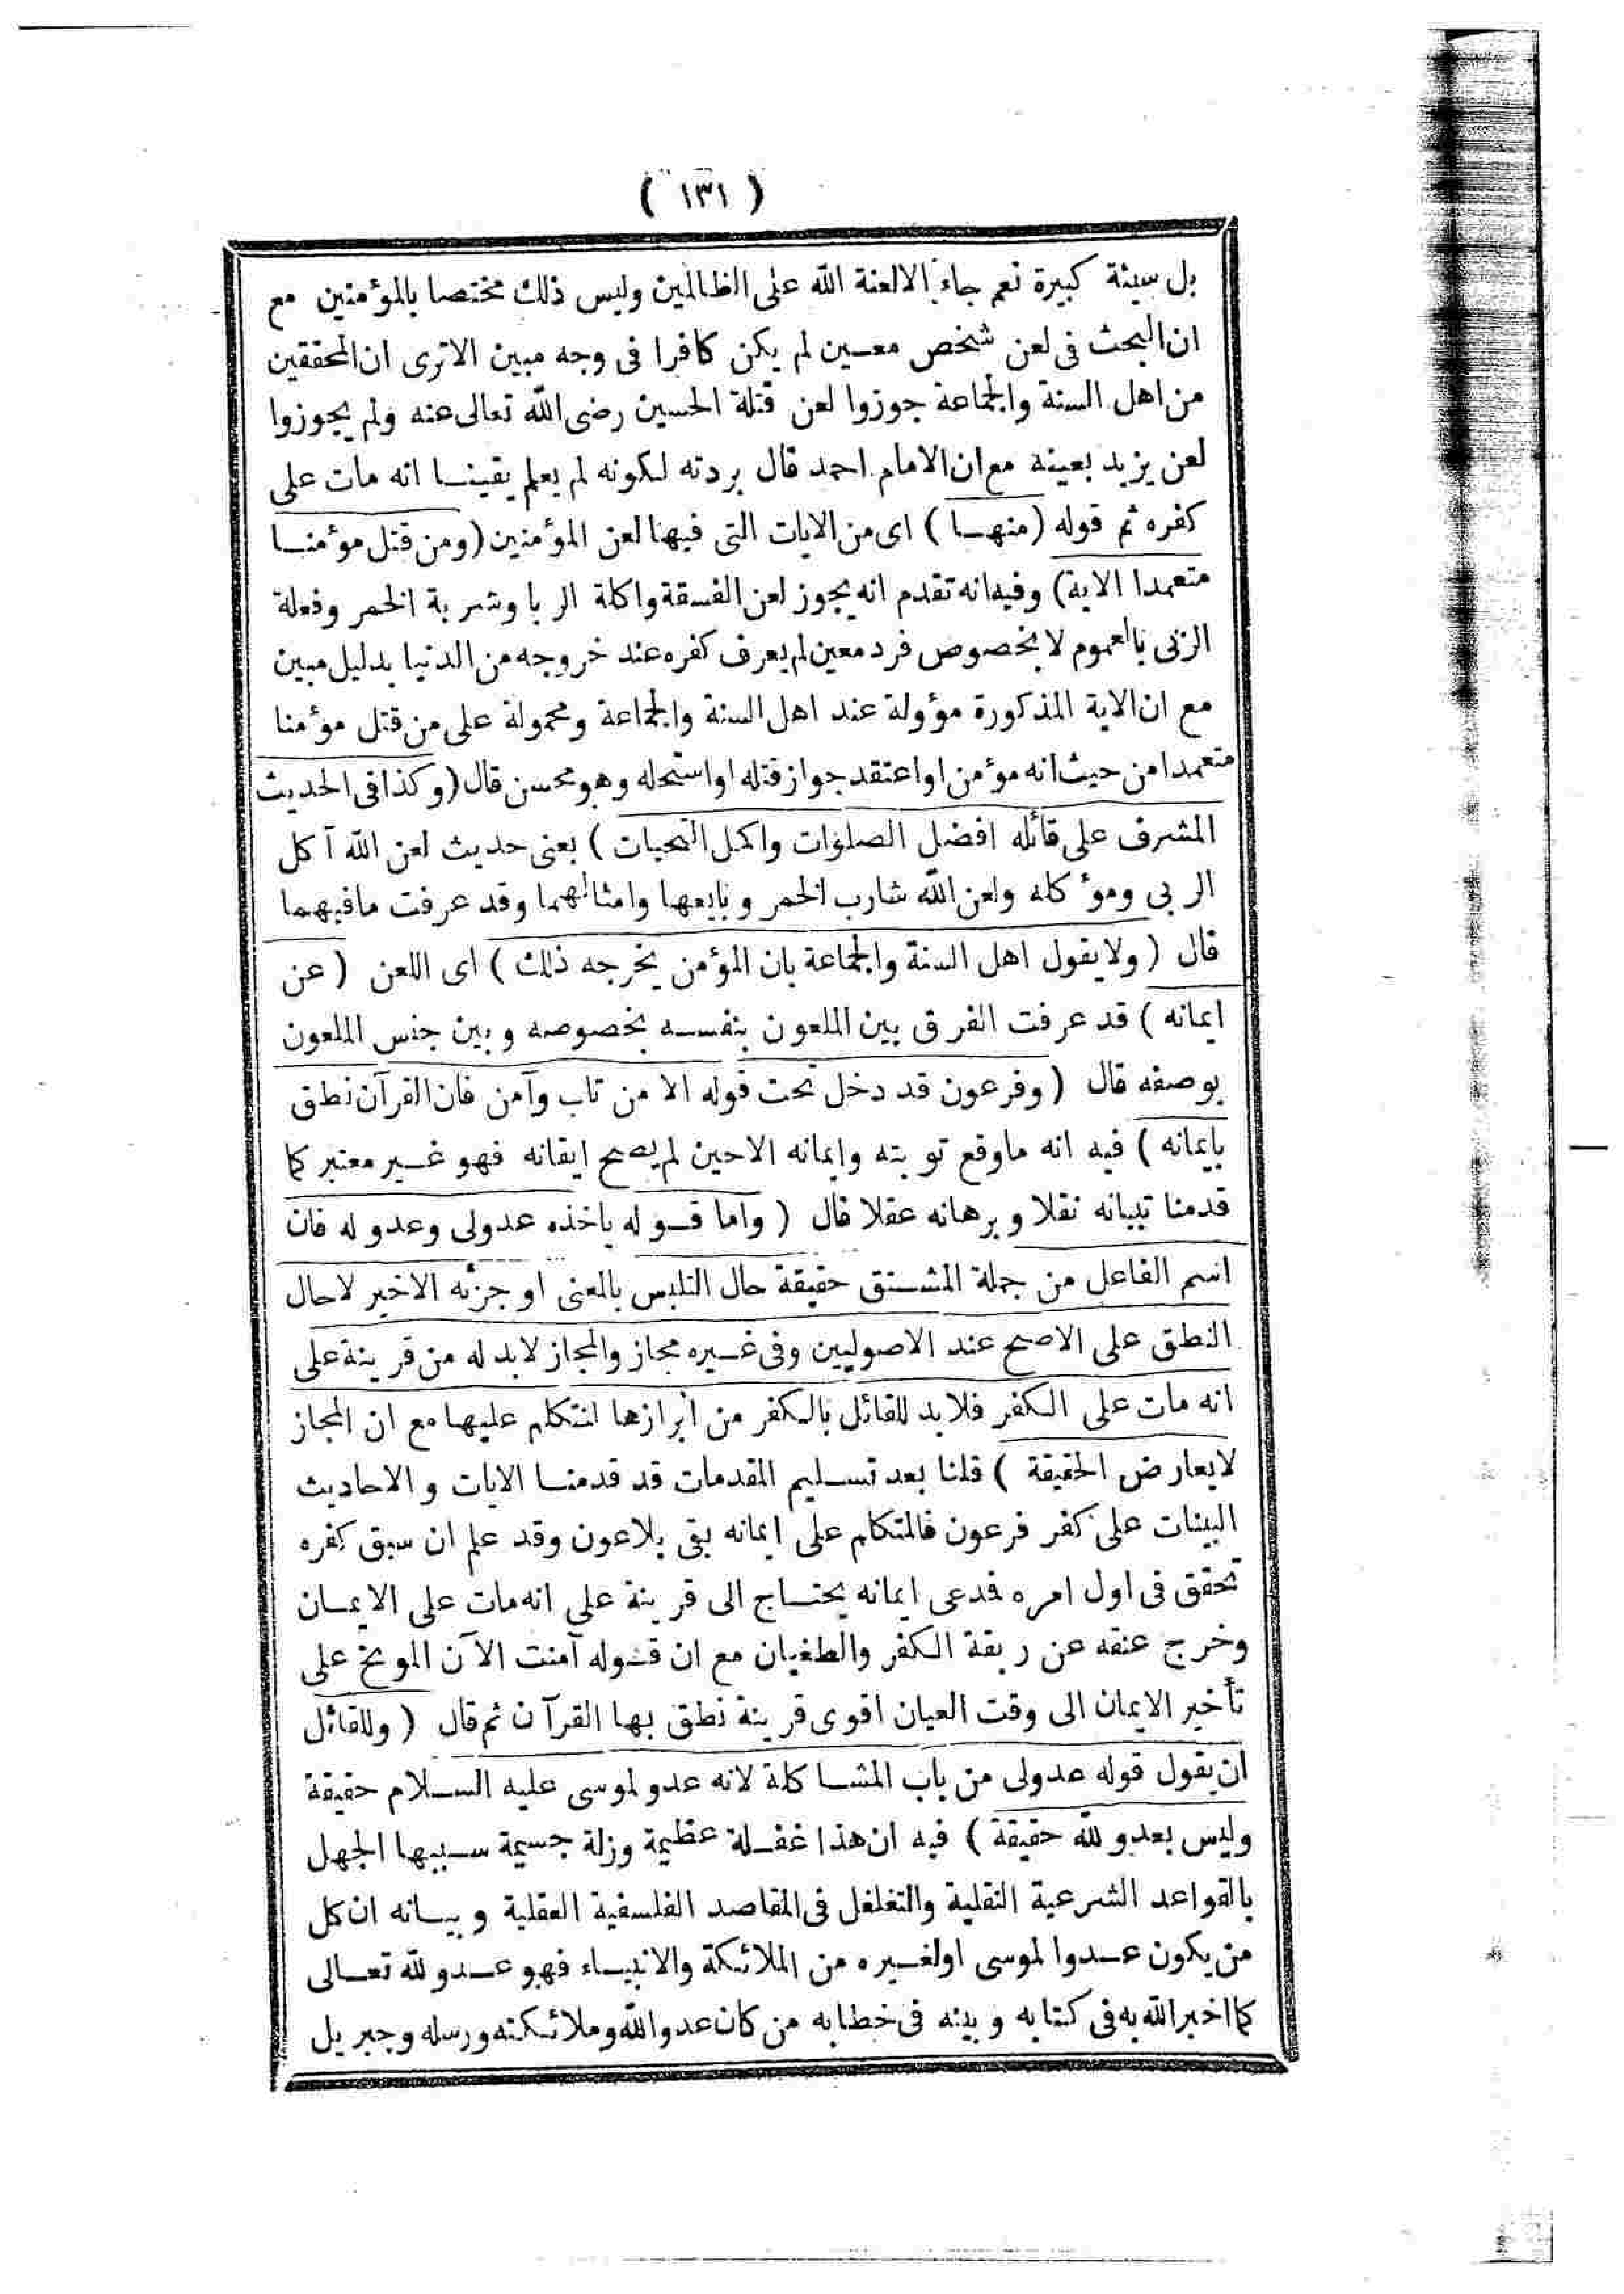 ( ١٣١ )
بل سيئة كبيرة نعم جاء الالعنة الله على الظالمين وليس ذلك مختصا بالمؤمنين مع
ان البحث فى لعن شخص معـين لم يكن كافرا فى وجه مبين الاترى ان المحققين
من اهل السنة والجماعة جوزوا لعن قتلة الحسين رضى الله تعالى عنه ولم يجوزوا
لعن يزيد بعينه مع ان الامام احمد قال بردته لكونه لم يعلم يقينـا انه مات على
كفره ثم قوله (منهـا) اى من الايات التى فيها لعن المؤمنين (ومن قتل مؤمنـا
متعمدا الاية) وفيه انه تقدم انه يجوز لعن الفسقة واكلة الربا وشربة الخمر وفعلة
الزنى بالعموم لا بخصوص فرد معين لم يعرف كفره عند خروجه من الدنيا بدليل مبين
مع ان الاية المذكورة مؤولة عند اهل السنة والجماعة ومحمولة على من قتل مؤمنا
متعمدا من حيث انه مؤمن او اعتقد جواز قتله او استحله وهو محسن قال (وكذا فى الحديث
المشرف على قائله افضل الصلوات واكمل التحيات) يعنى حديث لعن الله آكل
الربى ومؤكله ولعن الله شارب الخمر وبايعها وامثالهما وقد عرفت مافيهما
قال (ولايقول اهل السنة والجماعة بان المؤمن يخرجه ذلك) اى اللعن (عن
ايمانه) قد عرفت الفرق بين الملعون بنفسـه بخصوصه وبين جنس الملعون
بوصفه قال (وفرعون قد دخل تحت قوله الا من تاب وآمن فان القرآن نطق
بايمانه) فيه انه ماوقع توبته وايمانه الاحين لم يصح ايقانه فهو غـير معتبر كما
قدمنا تبيانه نقلا وبرهانه عقلا قال (واما قـوله ياخذه عدولى وعدو له فان
اسم الفاعل من جملة المشـتق حقيقة حال التلبس بالمعنى او جزئه الاخير لاحال
النطق على الاصح عند الاصوليين وفى غـيره مجاز والمجاز لابد له من قرينة على
انه مات على الكفر فلابد للقائل بالكفر من ابرازها لنتكلم عليها مع ان المجاز
لايعارض الحقيقة) قلنا بعد تسـليم المقدمات قد قدمنـا الايات والاحاديث
البينات على كفر فرعون فالمتكلم على ايمانه بقى بلاعون وقد علم ان سبق كفره
تحقق فى اول امره فدعى ايمانه يحتـاج الى قرينة على انه مات على الايمـان
وخرج عنقه عن ربقة الكفر والطغيان مع ان قـوله آمنت الآن الموبخ على
تأخير الايمان الى وقت العيان اقوى قرينة نطق بها القرآن ثم قال (وللقائل
ان يقول قوله عدولى من باب المشـاكلة لانه عدو لموسى عليه السـلام حقيقة
وليس بعدو لله حقيقة) فيه ان هذا غفـلة عظيمة وزلة جسيمة سـببها الجهل
بالقواعد الشرعية النقلية والتغلغل فى المقاصد الفلسفية العقلية وبيـانه ان كل
من يكون عـدوا لموسى اولغـيره من الملائكة والانبيـاء فهو عـدو لله تعـالى
كما اخبر الله به فى كتابه وبينه فى خطابه من كان عدوا لله وملائـكته ورسله وجبريل